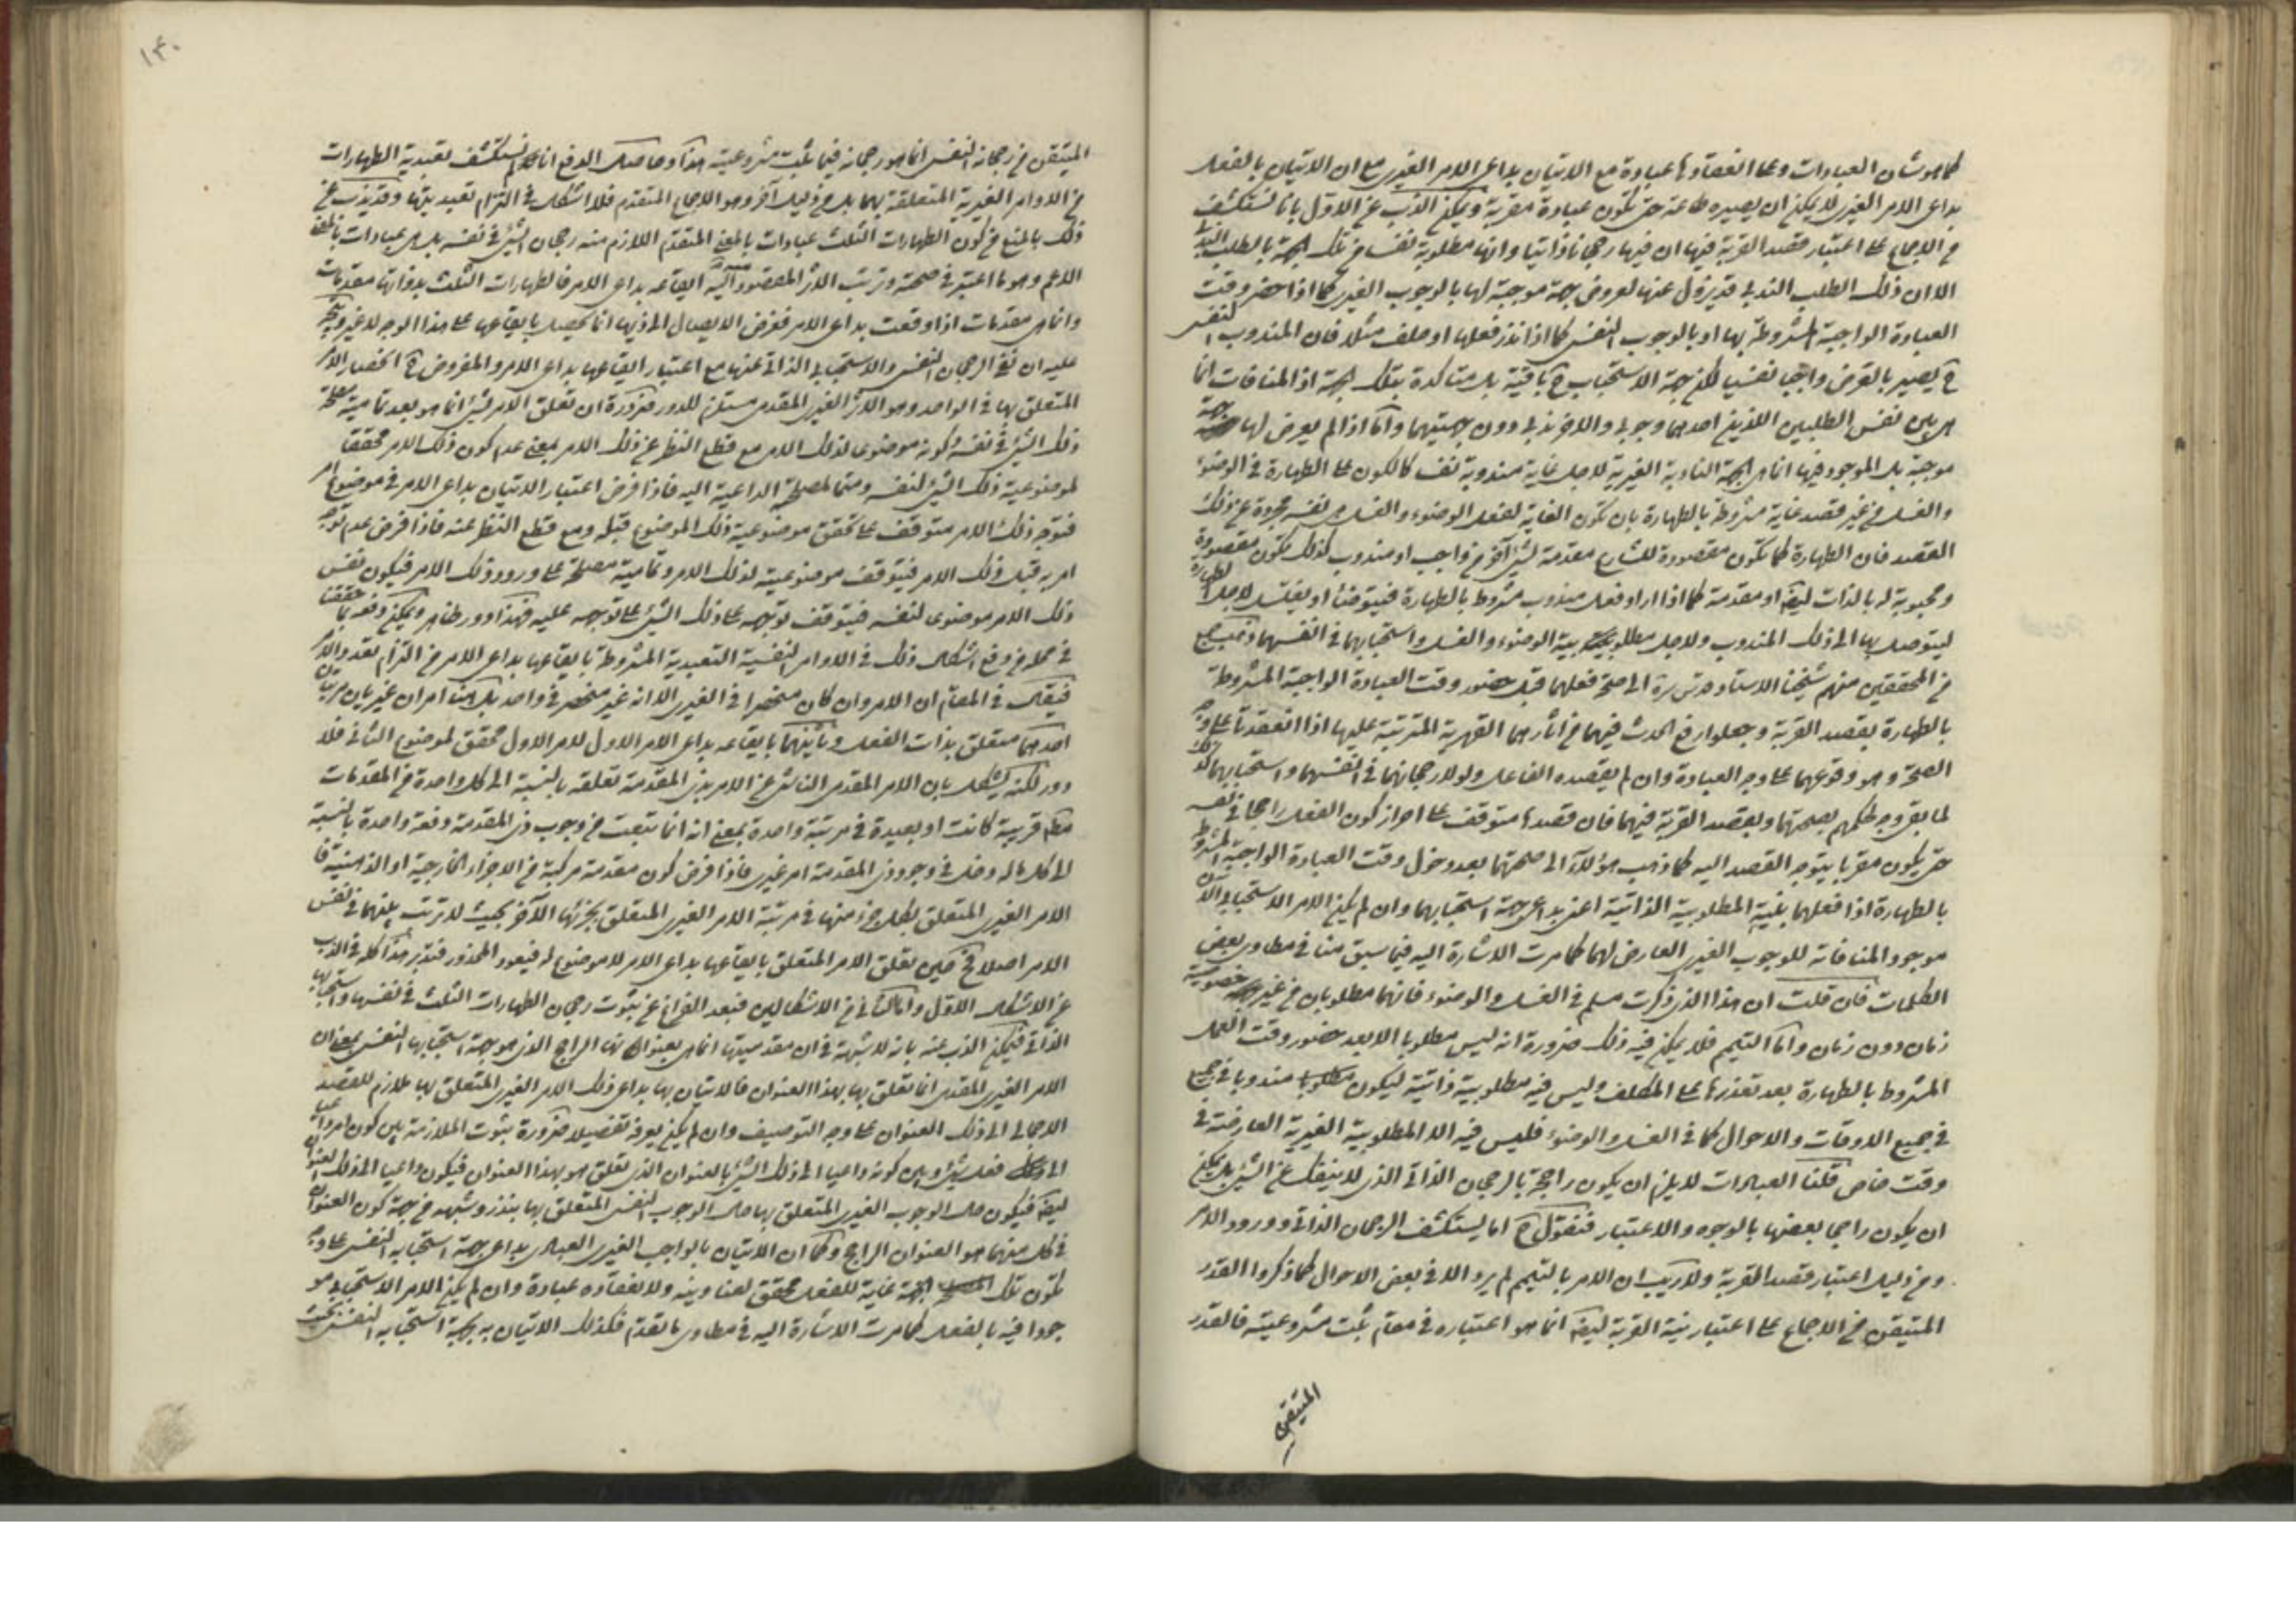 كما هو شان العبادات وعلى انعقادها عبادة مع الاتيان بداعى الامر الغيرى مع ان الاتيان بالفعل
بداعى الامر الغيرى لا يمكن ان يصيره طاعة حتى تكون عبادة مقربة ويمكن الذب عن الاول بانا نستكشف
من الاجماع على اعتبار قصد القربة فيها ان فيها رجحانا ذاتيا وانها مطلوبة نفسا من تلك الجهة بالطلب الندبى
الا ان ذلك الطلب الندبى قد يزول عنها لعروض جهة موجبة لها بالوجوب الغيرى كما اذا حضر وقت
العبادة الواجبة المشروطة بها او بالوجوب النفسى كما اذا نذر فعلها او حلف مثلا فان المندوب النفسى
ح يصير بالعرض واجبا نفسيا لكن جهة الاستحباب ح باقية بل متاكدة بتلك الجهة اذ المنافات انما
هى بين نفس الطلبين اللذين احدهما وجوبى والاخر ندبى دون جهتيهما واما اذا لم يعرض لها جهة
موجبة بل الموجود فيها انما هى الجهة النادبة الغيرية لاجل غاية مندوبة نفسا كالكون على الطهارة فى الوضوء
والغسل من غير قصد غاية مشروطة بالطهارة بان تكون الغاية لفعل الوضوء والغسل هى نفسه مجردة عن ذلك
القصد فان الطهارة كما تكون مقصودة للشارع مقدمة لشئ آخر من واجب او مندوب كذلك تكون مقصودة
ومحبوبة له بالذات ايضا او مقدمة كما اذا اراد فعل مندوب مشروط بالطهارة فيتوضأ او يغتسل لاجل الطهارة
ليتوصل بها الى ذلك المندوب ولاجل مطلوبية الوضوء والغسل واستحبابهما فى انفسهما ذهب جمع
من المحققين منهم شيخنا الاستاد قدس سره الى صحة فعلهما قبل حضور وقت العبادة الواجبة المشروطة
بالطهارة بقصد القربة وجعلوا رفع الحدث فيهما من آثارهما القهرية المترتبة عليها اذا انعقدتا على وجه
الصحة وهو وقوعهما على وجه العبادة وان لم يقصده الفاعل ولولا رجحانهما فى انفسهما واستحبابهما كذلك
لما بقى وجه لحكمهم بصحتهما وبقصد القربة فيهما فان قصدها متوقف على احراز كون الفعل راجحا فى نفسه
حتى يكون مقربا يتوجه القصد اليه كما ذهب هؤلاء الى صحتهما بعد دخول وقت العبادة الواجبة المشروطة
بالطهارة اذا فعلهما بنية المطلوبية الذاتية اعنى بداعى جهة استحبابهما وان لم يكن الامر الاستحبابى الآن
موجودا لمنافاته للوجوب الغيرى العارض لهما كما مرت الاشارة اليه فيما سبق منا فى مطاوى بعض
الكلمات فان قلت ان هذا الذى ذكرت مسلم فى الغسل والوضوء فانهما مطلوبان من غير خصوصية
زمان دون زمان واما التيمم فلا يمكن فيه ذلك ضرورة انه ليس مطلوبا الا بعد حضور وقت العمل
المشروط بالطهارة بعد تعذرها على المكلف وليس فيه مطلوبية ذاتية ليكون مندوبا فى جميع
فى جميع الاوقات والاحوال كما فى الغسل والوضوء فليس فيه الا المطلوبية الغيرية العارضة فى
وقت خاص قلنا العبادات لا يلزم ان يكون راجحة بالرجحان الذاتى الذى لا ينفك عن الشئ بل يمكن
ان يكون راجحا بعضها بالوجوه والاعتبار فنقول ح انا نستكشف الرجحان الذاتى وورود الامر
ومن دليل اعتبار قصد القربة ولا ريب ان الامر بالتيمم لم يرد الا فى بعض الاحوال كما ذكروا القدر
المتيقن من الاجماع على اعتبار نية القربة ايضا انما هو اعتباره فى مقام ثبت مشروعيته فالقدر
المتيقن
١٤٠
المتيقن من رجحانه النفسى انما هو رجحانه فيما ثبت مشروعيته هذا وحاصل الدفع انا لم نستكشف تعبدية الطهارات
من الاوامر الغيرية المتعلقة بهما بل من دليل آخر وهو الاجماع المتقدم فلا اشكال فى التزام تعبديتها وقد يذب عن
ذلك بالمنع من كون الطهارات الثلث عبادات بالمعنى المتقدم اللازم منه رجحان الشئ فى نفسه بل هى عبادات بالمعنى
الاعم وهو ما اعتبر فى صحته وترتب الاثر المقصود عليه ايقاعه بداعى الامر فالطهارات الثلث بذواتها مقدمات
وانما هى مقدمات اذا وقعت بداعى الامر فغرض الايصال الى ذيها انما يحصل بايقاعها على هذا الوجه لا غير ويتجه
عليه ان نفى الرجحان النفسى والاستحباب الذاتى عنها مع اعتبار ايقاعها بداعى الامر والمفروض ح انحصار الامر
المتعلق بها فى الواحد وهو الامر الغيرى المقدمى مستلزم للدور ضرورة ان تعلق الامر لشئ انما هو بعد تمامية مصلحة
ذلك الشئ فى نفسه وكونه موضوعا لذلك الامر مع قطع النظر عن ذلك الامر بمعنى عدم كون ذلك الامر محققا
لموضوعية ذلك الشئ لنفسه ومتمما لمصلحة الداعية اليه فاذا فرض اعتبار الاتيان بداعى الامر فى موضوع امر
فتوجه ذلك الامر متوقف على تحقق موضوعية ذلك الموضوع قبله ومع قطع النظر عنه فاذا فرض عدم توجه
امر به قبل ذلك الامر فيتوقف موضوعيته لذلك الامر وتمامية مصلحته على ورود ذلك الامر فيكون نفس
ذلك الامر موضوعا لنفسه فيتوقف توجهه على ذلك الشئ على توجهه عليه فهذا دور ظاهر ويمكن دفعه بما حققنا
فى محله من دفع اشكال ذلك فى الاوامر النفسية التعبدية المشروطة بايقاعها بداعى الامر من التزام تعدد الامر
فيقال فى المقام ان الامر وان كان منحصرا فى الغيرى الا انه غير منحصر فى واحد بل هنا امران غيريان مرتبان
احدهما متعلق بذات الفعل وثانيهما بايقاعه بداعى الامر الاول فالامر الاول محقق لموضوع الثانى فلا
دور لكنه يشكل بان الامر المقدمى الناشئ عن الامر بذى المقدمة تعلقه بالنسبة الى كل واحدة من المقدمات
قريبة كانت او بعيدة فى مرتبة واحدة بمعنى انه انما تنبعث من وجوب ذى المقدمة دفعة واحدة بالنسبة
الى كل ما له دخل فى وجود ذى المقدمة امر غيرى فاذا فرض كون مقدمة مركبة من الاجزاء الخارجية او الذهنية فا
الامر الغيرى المتعلق بكل جزء منها فى مرتبة الامر الغيرى المتعلق بجزئها الآخر بحيث لا ترتب بينهما فى نفس
الامر اصلا فح حين تعلق الامر المتعلق بايقاعها بداعى الامر لا موضوع له فيعود المحذور فتدبر هذا كله فى الذب
عن الاشكال الاول واما الثانى من الاشكالين فبعد الفراغ عن ثبوت رجحان الطهارات الثلث فى نفسها واستحبابها
الذاتى فيمكن الذب عنه بانه لا شبهة فى ان مقدميتها انما هى بعنوانها الراجح الذى هو جهة استحبابها النفسى بمعنى ان
الامر الغيرى المقدمى انما تعلق بها بهذا العنوان فالاتيان بها بداعى ذلك الامر الغيرى المتعلق بها ملازم للقصد
الاجمالى الى ذلك العنوان على وجه التوصيف وان لم يكن يعرفه تفصيلا ضرورة ثبوت الملازمة بين كون امر داعيا
الى فعل شئ وبين كونه داعيا الى ذلك الشئ بالعنوان الذى تعلق هو بهذا العنوان فيكون داعيا الى ذلك العنوان
ايضا فيكون حال الوجوب الغيرى المتعلق بها حال الوجوب النفسى المتعلق بها بنذر وشبهه من جهة كون العنوان
فى كل منهما هو العنوان الراجح وكما ان الاتيان بالواجب الغيرى العبادى بداعى جهة استحبابه النفسى على وجه
تكون تلك الجهة غاية للفعل محقق لعناوينه ولانعقاده عبادة وان لم يكن الامر الاستحبابى مو
جودا فيه بالفعل كما مرت الاشارة اليه فى مطاوى ما تقدم فكذلك الاتيان به بجهة استحبابه النفسى بحيث